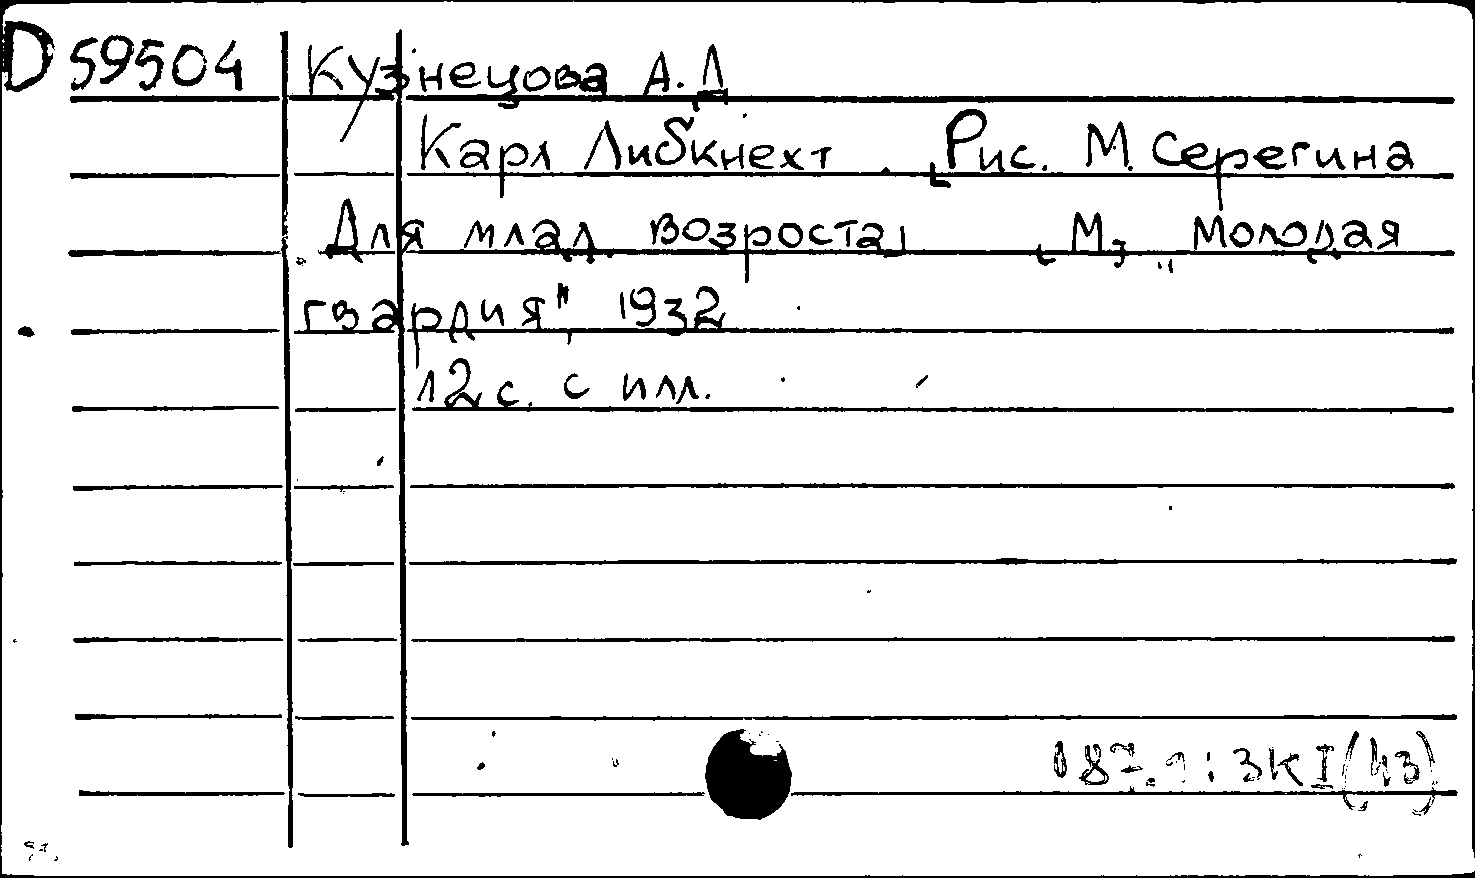 D 59504 Кузнецова А.Д
Карл Либкнехт. Рис. М. Серегина
Для млад. возроста, М., "Молодая
гвардия", 1932
12 с. с илл.
087.1:3КI(43)